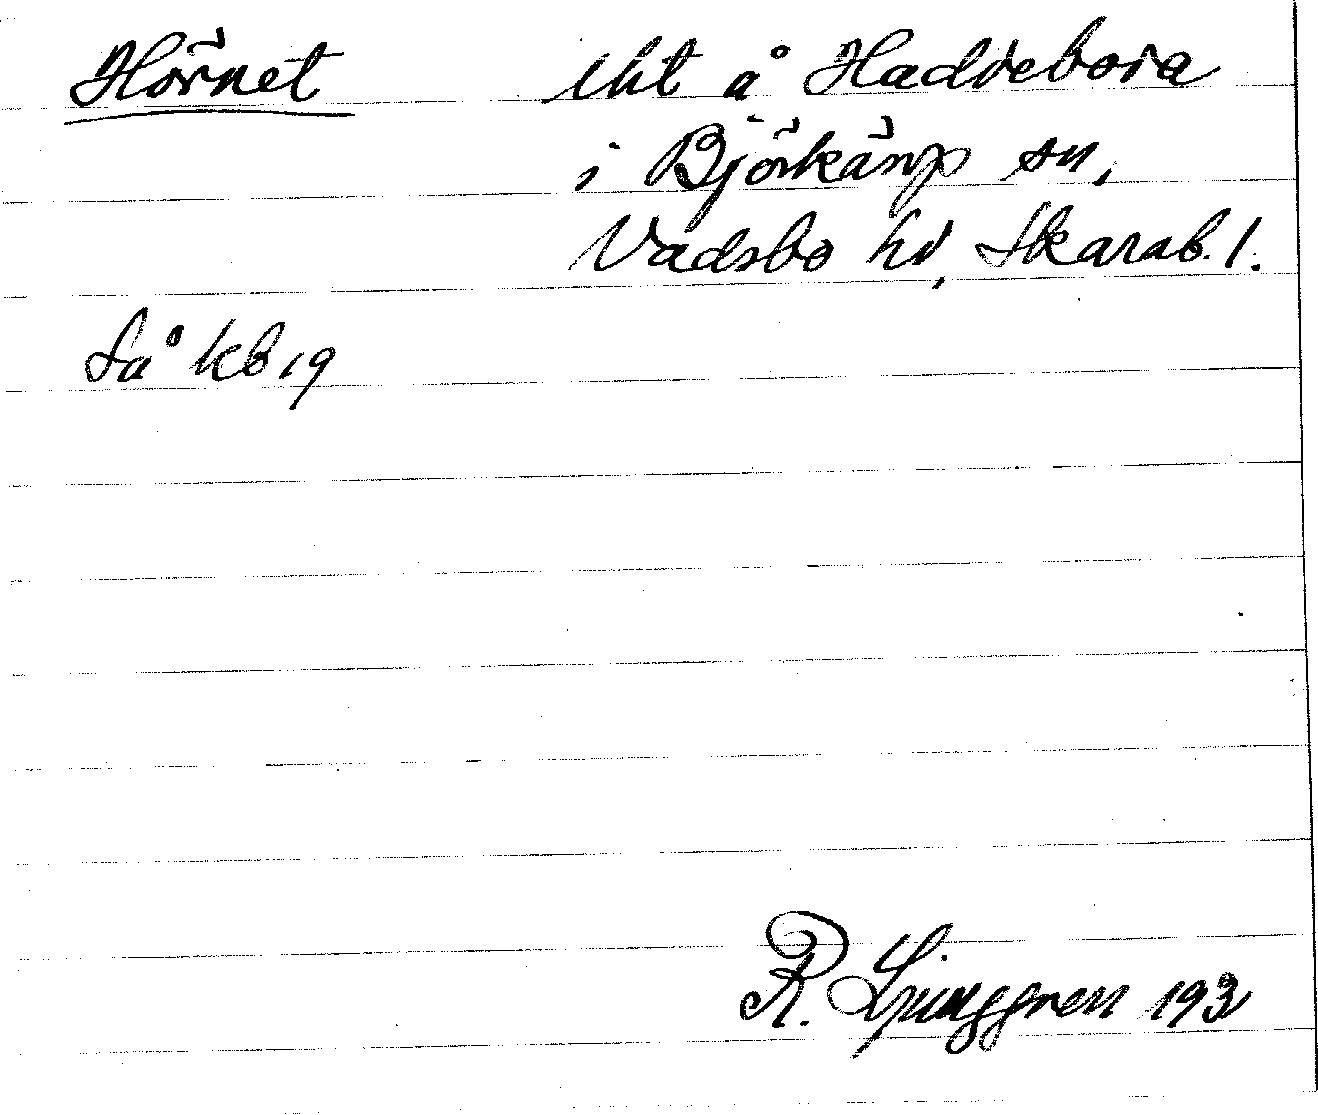 Hörnet lht å Haddebora
i Björkäng sn,
Vadsbo hd, Skarab. l.
Så kb 19
R. Ljunggren 193